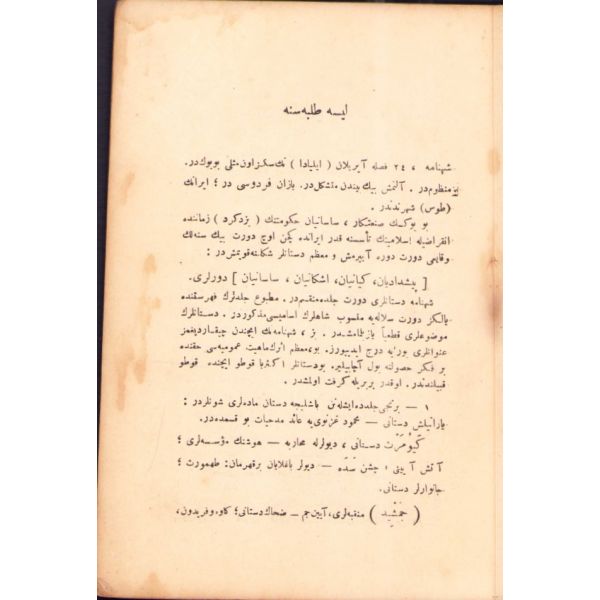 ليسه طلبه سنه
شهنامه ، ٢٤ فصله آيريلان ( ايليادا ) نك سكز اون مثلى بويوكدر.
منظوم در . آلتمش بيك بيتدن متشكل در. يازان فردوسى در ؛ ايرانك
(طوس) شهرندندر .
بو بويوك صنعتكار ، ساسانيان حكومتنك ( يزدكرد ) زماننده
انقراضيله اسلاميتك تأسسنه قدر ايرانده كچن اوچ دورت بيك سنه لك
وقايعى دورت دوره آييرمش و معظم دستانلر شكلنه قويمش در :
[ پيشداديان، كيانيان، اشكانيان ، ساسانيان ] دورلرى.
شهنامه دستانلرى دورت جلده منقسم در. مطبوع جلدلرك فهرستنده
يالكز دورت سلاله يه منسوب شاهلرك اساميسى مذكوردر . دستانلرك
موضوعلرى قطعياً يازلمامشدر. بز ، شهنامه نك ايچندن چيقارديغمز
عنوانلرى بورايه درج ايدييورز. بو، معظم اثرك ماهيت عموميه سى حقنده
بر فكر حصولنه يول آچابيلير. بو دستانلر اكثريا قوطو ايچنده قوطو
قبيلندندر . اوقدر بربريله كرفت اولمشدر .
١ — برنجى جلدده ايشله نن باشليجه دستان ماده لرى شونلردر :
يارادیلش دستانى — محمود غزنوى يه عائد مدحيات بو قسمده در.
كَيومَرْت دستانى ، ديولرله محاربه — هوشنك مؤسسه لرى ؛
آتش آيينى ؛ جشن سَدَه — ديولر باغلايان بر قهرمان: طهمورث ؛
جانوارلر دستانى.
( جمشيد ) منقبه لرى، آيين جم — ضحاك دستانى ؛ كاوه و فريدون،